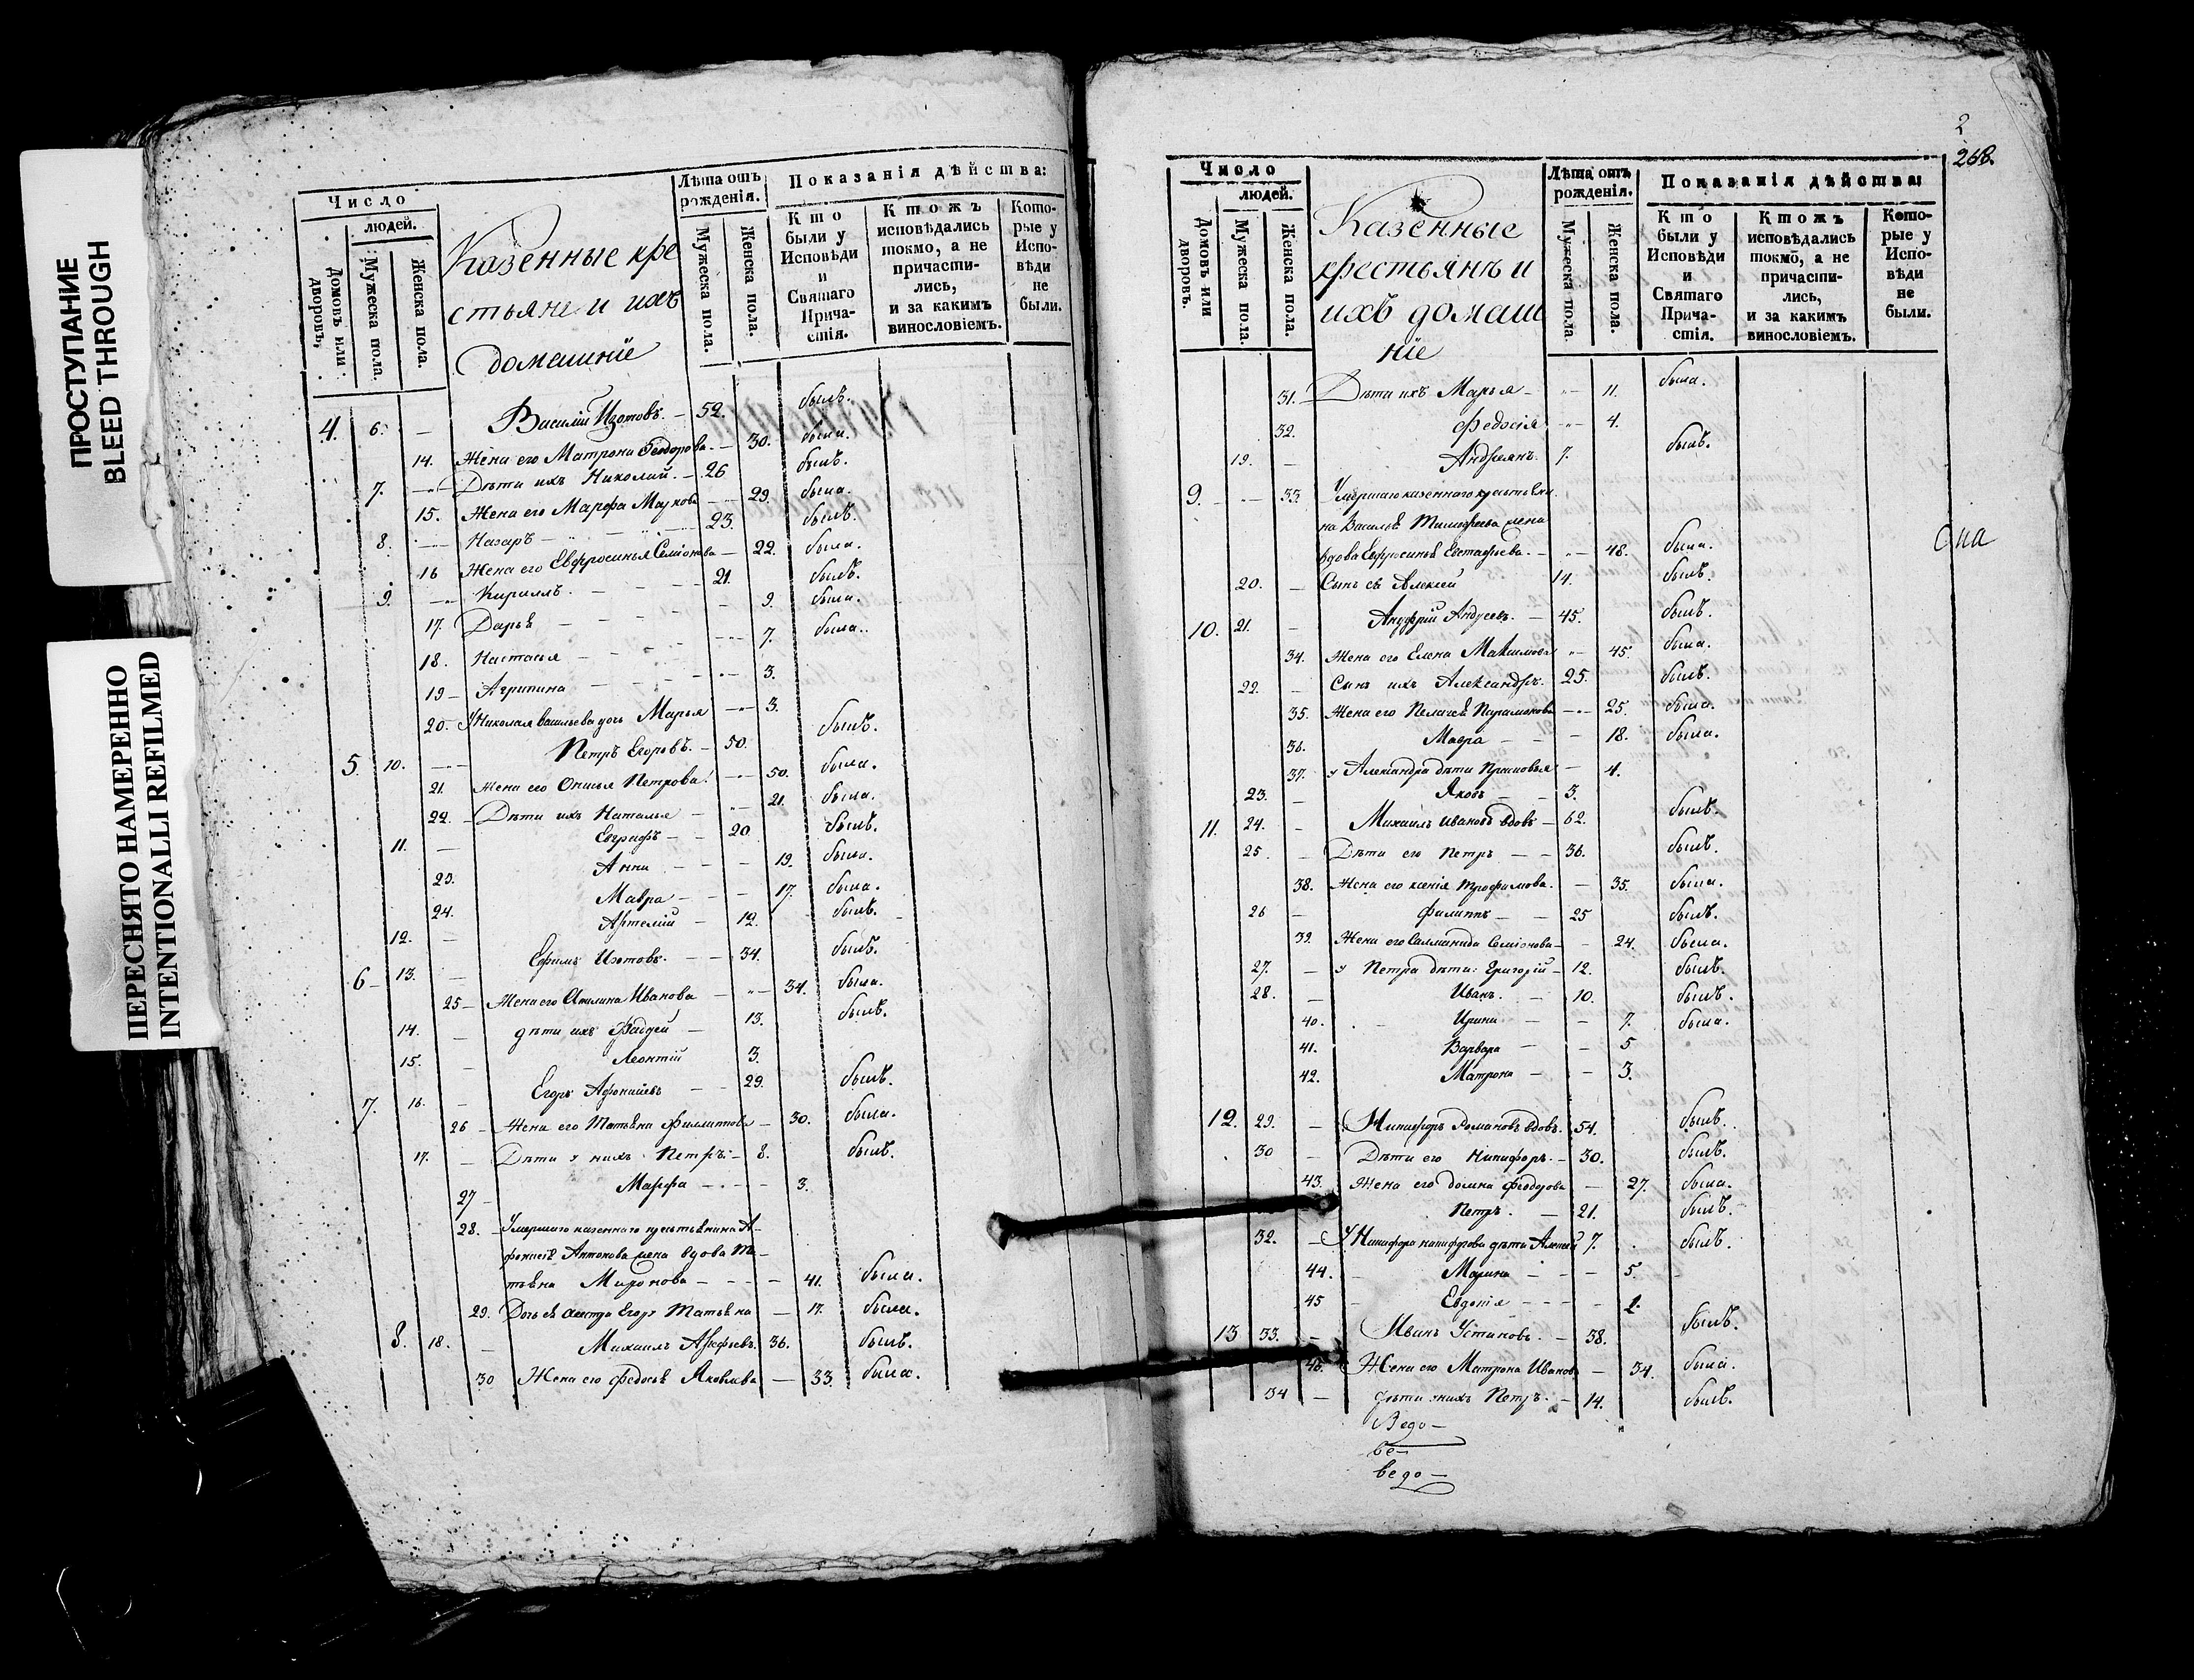 ПРОСТУПАНИЕ
BLEED THROUGH
ПЕРЕСНЯТО НАМЕРЕННО
INTENTIONALLI REFILMED
Число
людей.
Домовъ или дворовъ.
Мужеска пола.
Женска пола.
Казенные кре
стьяне и ихъ
домашніе
Лѣта отъ рожденія.
Мужеска пола.
Женска пола.
Показанія дѣйства:
Кто были у Исповѣди и Святаго Прича-стія.
Ктожъ исповѣдались токмо, а не причасти-лись, и за какимъ винословіемъ.
Кото-рые у Испо-вѣди не были.
4. 6. — Василій Изотовъ. — 52. былъ.
14. Жена его Матрона Феодорова. — 30. была.
7. — Дѣти ихъ Николай. — 26 былъ.
15. Жена его Марфа Маркова — 29. была.
8. — Назаръ — 23. былъ.
16 Жена его Евфросинья Семіонова — 22. была.
9. — Кириллъ. — 21. былъ.
17. Дарья — 9. была.
18. Настасья — 7. была.
19 — Агрипина — 3.
20. У Николая Васильева дочь Марья — 3.
5. 10. — Петръ Егоровъ. — 50. былъ.
21. Жена его Петрова — 50. была.
22. — Дѣти ихъ Наталья — 21. была.
11. — Евграфъ — 20. былъ.
23. Анна — 19. была.
24. Мавра — 17. была.
12. — Артемій — 12. былъ.
6 — 13. — Ефимъ Изотовъ. — 34. былъ.
25 — Жена его Акилина Иванова — 34. была.
14. — дѣти ихъ Фадей — 13. былъ.
15. — Леонтій 3.
7. 16. — Егоръ Афонасьевъ — 29. былъ.
26 — Жена его Татьяна Филиппова — 30. была.
17. — Дѣти у нихъ Петръ. — 8. былъ.
27 — Марфа — 3.
28. — Умершаго казеннаго крестьянина А-
фонасія Антонова жена вдова Та-
тьяна Миронова — 41. была.
29. Дочь ея сестра Егору Татьяна — 17. была.
8. 18. — Михаилъ 36. былъ.
30 Жена его Федосья Яковлева — 33. была.
2
268.
Число
людей.
Домовъ или дворовъ.
Мужеска пола.
Женска пола.
Казенные
крестьянъ и
ихъ домаш
ніе
Лѣта отъ рожденія.
Мужеска пола.
Женска пола.
Показанія дѣйства:
Кто были у Исповѣди и Святаго Прича-стія.
Ктожъ исповѣдались токмо, а не причасти-лись, и за какимъ винословіемъ.
Кото-рые у Испо-вѣди не были.
31. Дѣти ихъ Марья — 11. была.
32. Федосія — 4.
19. — Андреянъ. 7. былъ.
9. — 33. Умершаго казеннаго крестьяни-
на Василья Тимофеева жена
вдова Ефросинья Евстафьева. — 48. была.
20. — Сынъ ея Алексей 14. былъ.
10. 21. — Андрей Андреевъ. — 45. былъ.
34. Жена его Елена Максимова — 45. была.
22. — Сынъ ихъ Александръ. 25. былъ.
35. Жена его Пелагея Парамонова — 25. была.
36. Мавра — 18. была.
37. у Александра дѣти — 4.
23. — Яковъ — 3.
11. 24. — Михаилъ Ивановъ вдовъ — 62. былъ.
25. — Дѣти его Петръ — 36. былъ.
38. Жена его Ксенія Трофимова. — 35. была.
26 — Филиппъ — 25 былъ.
39. Жена его Саламанида Семіонова — 24. была.
27. — у Петра дѣти: Григорій — 12. былъ.
28. — Иванъ. — 10. былъ.
40. Ирина — 7. была.
41. Варвара — 5
42. Матрона — 3.
12. 29. — Никифоръ Романовъ вдовъ. 54. былъ.
30 — Дѣти его Никифоръ. — 30. былъ.
43. Жена его Домна Феодорова — 27. была.
Петръ. — 21. былъ.
32. — У Никифора Никифорова дѣти Алексей 7. былъ.
44. — Марина — 5.
45 — Евдокія — 1.
13 33. — Иванъ Устиновъ. — 38. былъ.
46. Жена его Матрона Иванова — 34. была.
34 — дѣти у нихъ Петръ. — 14. былъ.
Ведо —
ве —
ведо —